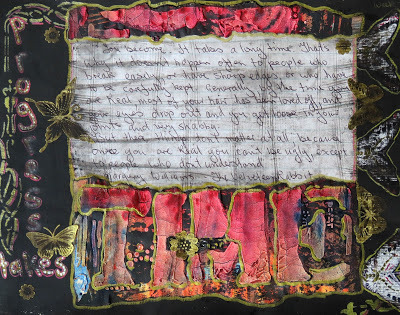 Progress
takes
You become. It takes a long time. Thats
why it doesn't happen often to people who
break easily, or have sharp edges, or who have
to be carefully kept. Generally, by the time you
are Real, most of your hair has been loved off, and
your eyes drop out and you get loose in your
joints and very shabby.
But these things don't matter at all, because
once you are Real you can't be ugly, except
to people who don't understand.
Margery Williams The Velveteen Rabbit
TIME